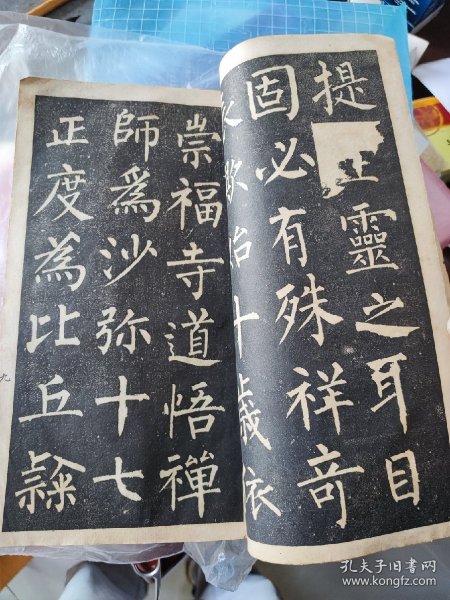 提靈之耳目
固必有殊祥奇
表歟始十歲依
崇福寺道悟禪
師爲沙弥十七
正度為比丘隸
九
孔夫子旧书网
www.kongfz.com